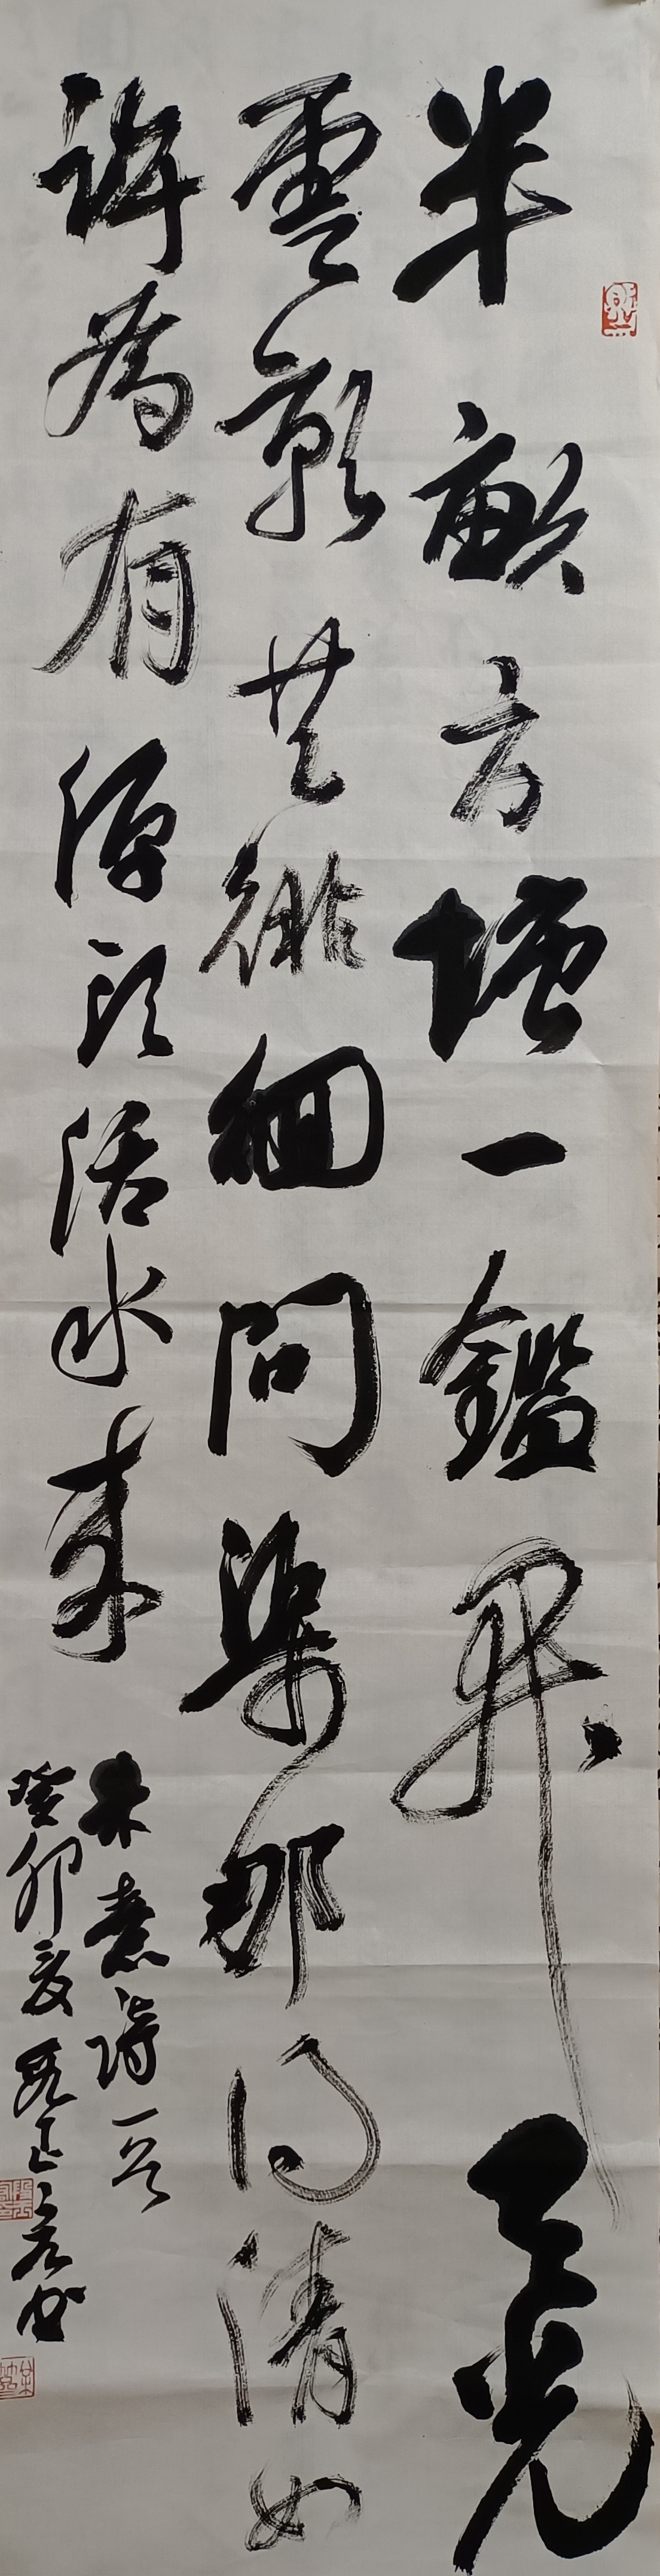 半畝方塘一鑑開天光
雲影共徘徊問渠那得清如
許為有源頭活水來
朱熹詩一首
癸卯夏